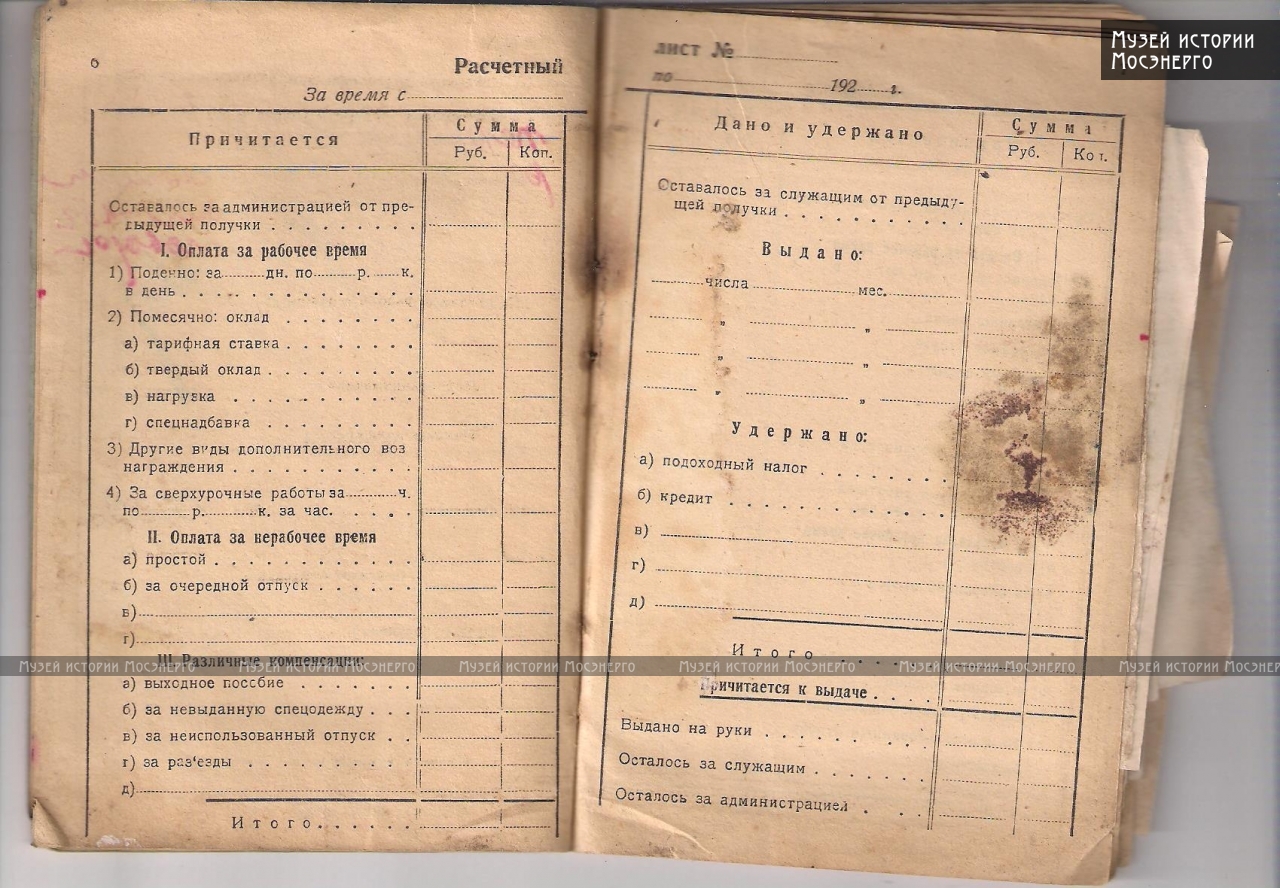 6
Расчетный
За время с
Причитается
Сумма
Руб. Коп.
Оставалось за администрацией от пре-
дыдущей получки
I. Оплата за рабочее время
1) Поденно: за дн. по р. к.
в день
2) Помесячно: оклад
а) тарифная ставка
б) твердый оклад
в) нагрузка
г) спецнадбавка
3) Другие виды дополнительного воз
награждения
4) За сверхурочные работы за ч.
по р. к. за час.
II. Оплата за нерабочее время
а) простой
б) за очередной отпуск
в)
г)
III. Различные компенсации:
а) выходное пособие
б) за невыданную спецодежду
в) за неиспользованный отпуск
г) за раз'езды
д)
Итого
лист №
по 192 г.
Дано и удержано
Сумма
Руб. Коп.
Оставалось за служащим от предыду-
щей получки
Выдано:
числа мес.
" "
" "
" "
Удержано:
а) подоходный налог
б) кредит
в)
г)
д)
Итого
Причитается к выдаче
Выдано на руки
Осталось за служащим
Осталось за администрацией
Музей истории
Мосэнерго
Музей истории Мосэнерго Музей истории Мосэнерго Музей истории Мосэнерго Музей истории Мосэнерго Музей истории Мосэнерго Музей истории Мосэнер